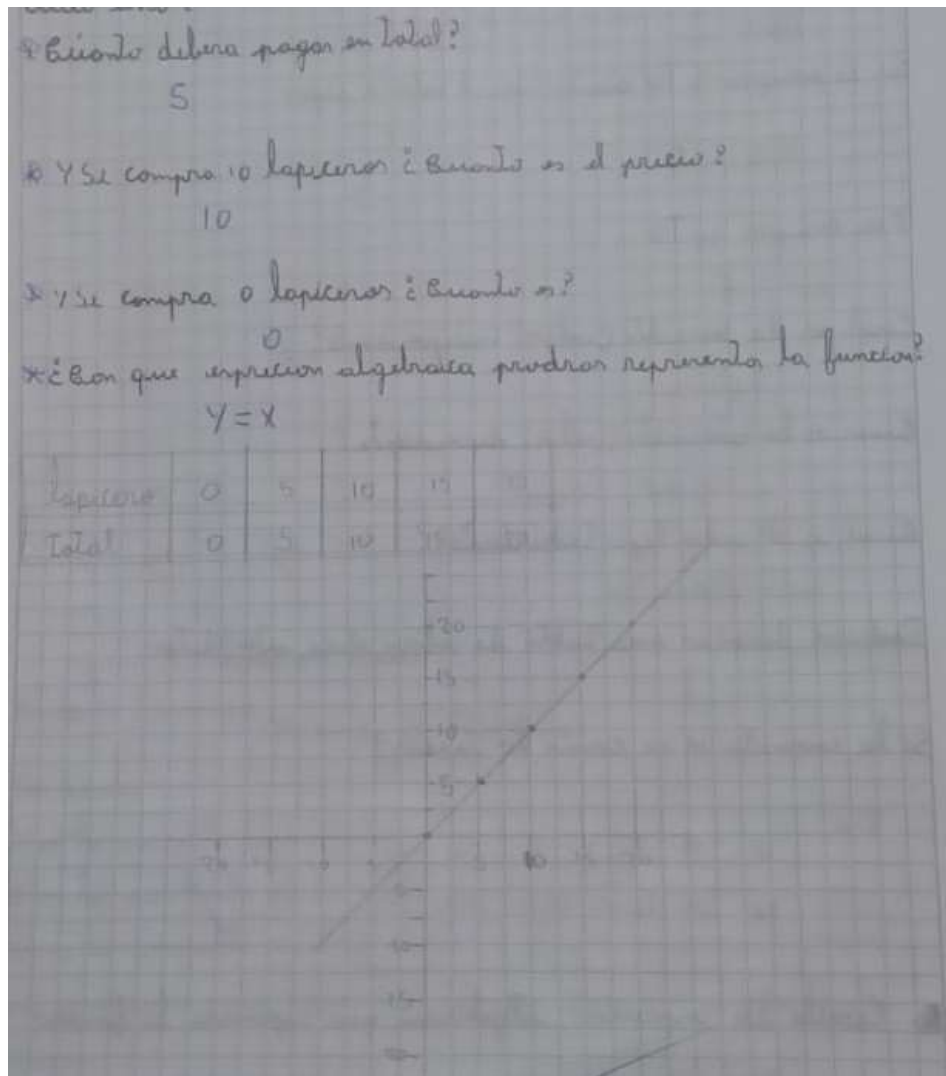 * Cuanto debera pagar en Total?
5
* Y Se compra 10 lapiceros ¿Cuanto es el precio?
10
* Y Se compra 0 lapiceros ¿Cuanto es?
0
* ¿Con que exprecion algebraica prodras reprerentar la funcion?
Y = X
lapicero 0 5 10 15
Total 0 5 10 15 20
20
15
10
5
10
5
10
15